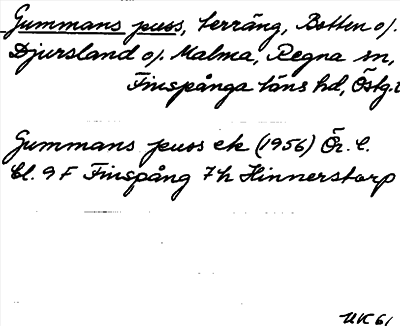 Gummans puss, terräng, Botten o/.
Djursland o/. Malma, Regna sn,
Finspånga läns hd, Östg.l
Gummans puss ek (1956) Ör. l.
bl. 9 F Finspång 7h Hinnerstorp
UK 61